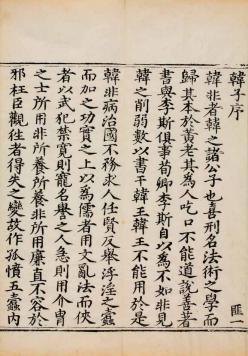 韓子序
匪一
韓非者韓之諸公子也喜刑名法術之學而
歸其本於黃老其爲人吃口不能道說善著
書與李斯俱事荀卿李斯自以爲不如非見
韓之削弱數以書干韓王韓王不能用於是
韓非病治國不務求人任賢反舉浮淫之蠹
而加之功實之上以爲儒者用文亂法而俠
者以武犯禁寬則寵名譽之人急則用介胄
之士所用非所養所養非所用廉直不容於
邪枉臣觀往者得失之變故作孤憤五蠹內